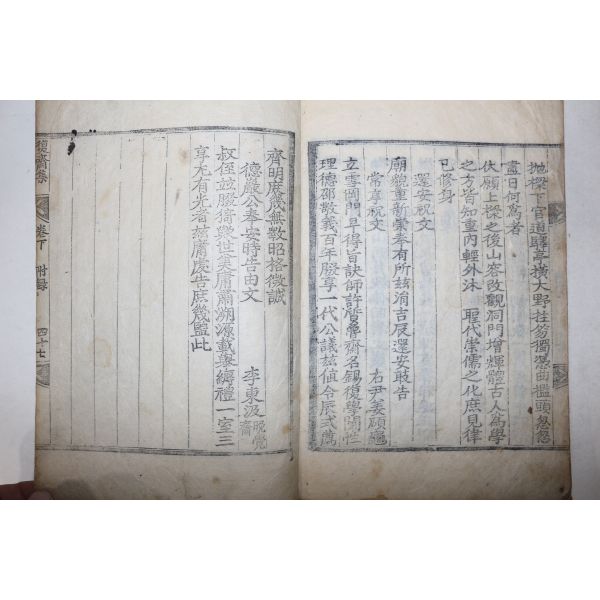 抛樑下官道驛亭橫大野拄笏獨憑曲檻頭忽忽
盡日何爲者
伏願上樑之後山容改觀洞門增輝體古人爲學
之方皆知重內輕外沐　聖代崇儒之化庶見律
已修身
還安祝文
廟貌重新崇奉有所玆涓吉辰還安敢告
常享祝文　右尹姜碩龜
立雪岡門早得旨訣師許魯齋名錫復學闡性
理德邵敬義百年腏享一代公議玆値令辰式薦
齊明庶幾無斁昭格微誠
德巖公奉安時告由文　李東汲 晩覺齋
叔侄竝腏猗歟世美庸肅溯源載擧縟禮一室三
享尤有光者玆庸虔告庶幾鑑此
復齋集　卷下　附錄　四十七